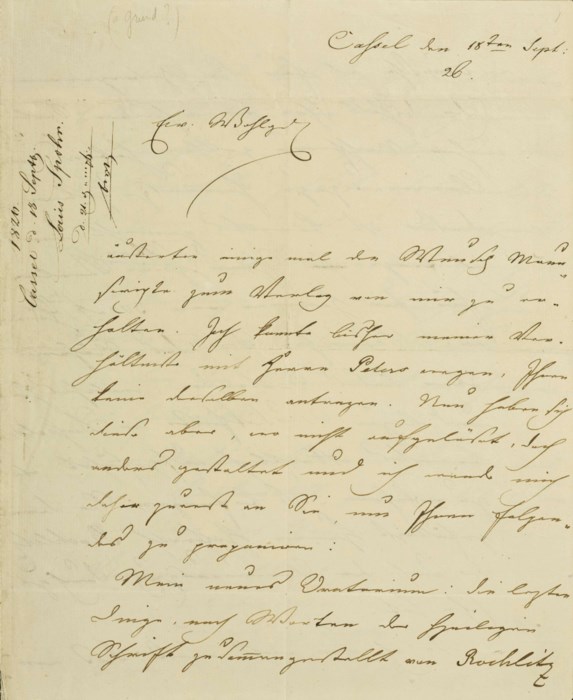 Cassel den 18ten Sept:
26.
1826
Cassel d 18 Septbr.
Louis Spohr.
Ew. Wohlgeb
äußerten einige mal den Wunsch Manu=
scripte zum Verlag von mir zu er=
halten. Ich konnte bisher meiner Ver=
hältniße mit Herrn Peters wegen, Ihnen
keine derselben antragen. Nun haben sich
diese aber, wo nicht aufgelösst, doch
anders gestaltet und ich wende mich
daher zuerst an Sie, um Ihnen folgen=
des zu proponiren:
Mein neues Oratorium: die lezten
Dinge, nach Worten der heiligen
Schrift zusammengestellt von Rochlitz